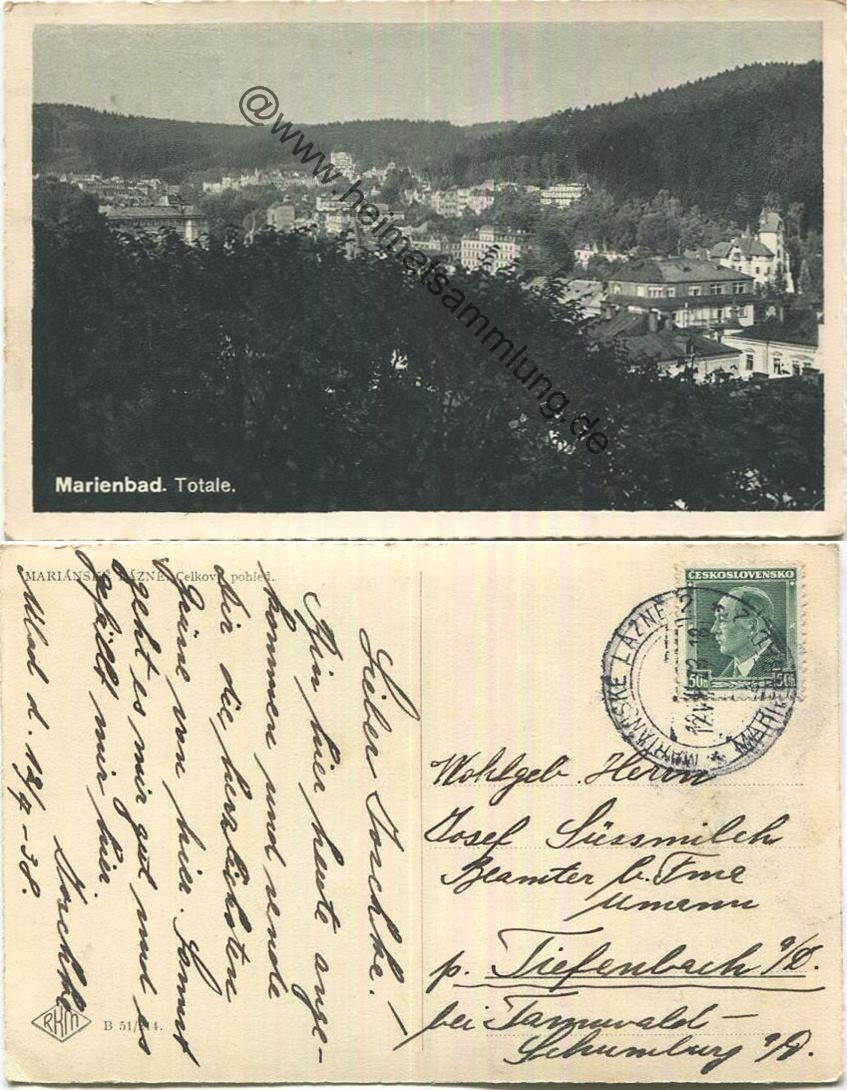 @www.heimatsammlung.de
Marienbad. Totale.
MARIÁNSKÉ LÁZNĚ. Celkový pohled.
Lieber Joschke! –
Bin hier heute ange-
kommen und sende
Dir die herzlichsten
Grüsse von hier. Sonst
geht es mir gut und es
gefällt mir hier
Joschke
Mbad d. 12/7-38.
RKM
B 51/214.
ČESKOSLOVENSKO
50h 50h
MARIÁNSKÉ LÁZNĚ 2
Wohlgeb. Herrn
Josef Süssmilch
Beamter b. Fma
Umann
p. Tiefenbach a/D.
bei Tannwald –
Schumburg a/D.